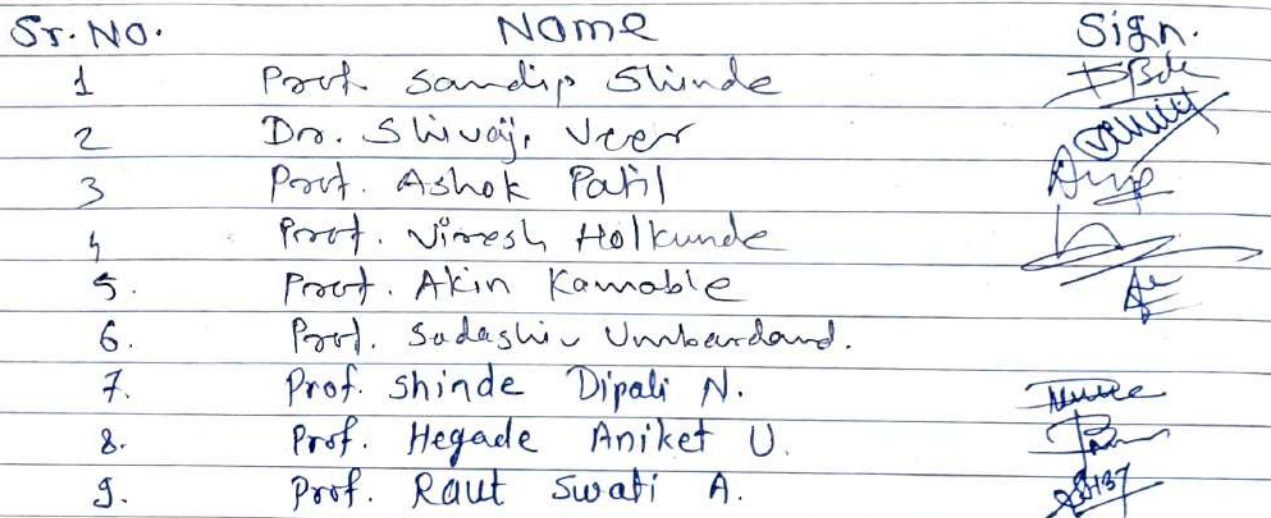 Sr. No. Name Sign.
1 Prof. Sandip Shinde
2 Dr. Shivaji Veer
3 Prof. Ashok Patil
4 Prof. Viresh Holkunde
5. Prof. Akin Kamable
6. Prof. Sadashiv
7. Prof. Shinde Dipali N.
8. Prof. Hegade Aniket U.
9. Prof. Raut Swati A.